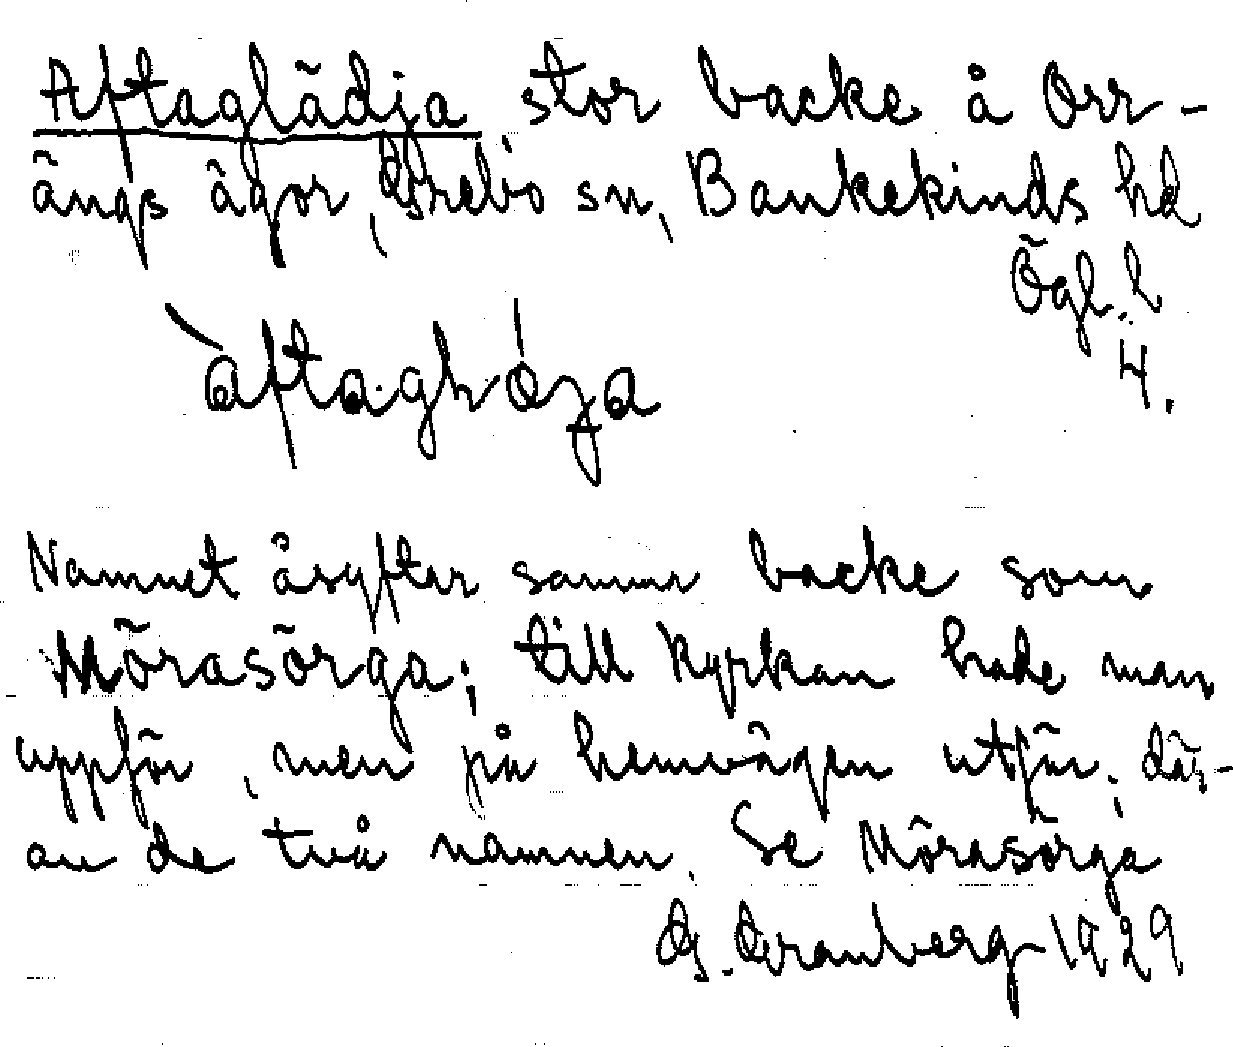 Aftaglädja stor backe å Orr-
ängs ägor, Grebo sn, Bankekinds hd
Ögl. l
4.
Namnet åsyftar samma backe som
Mörasörga; till kyrkan hade man
uppför, men på hemvägen utför; där-
av de två namnen. Se Mörasörga
G. Granberg 1929